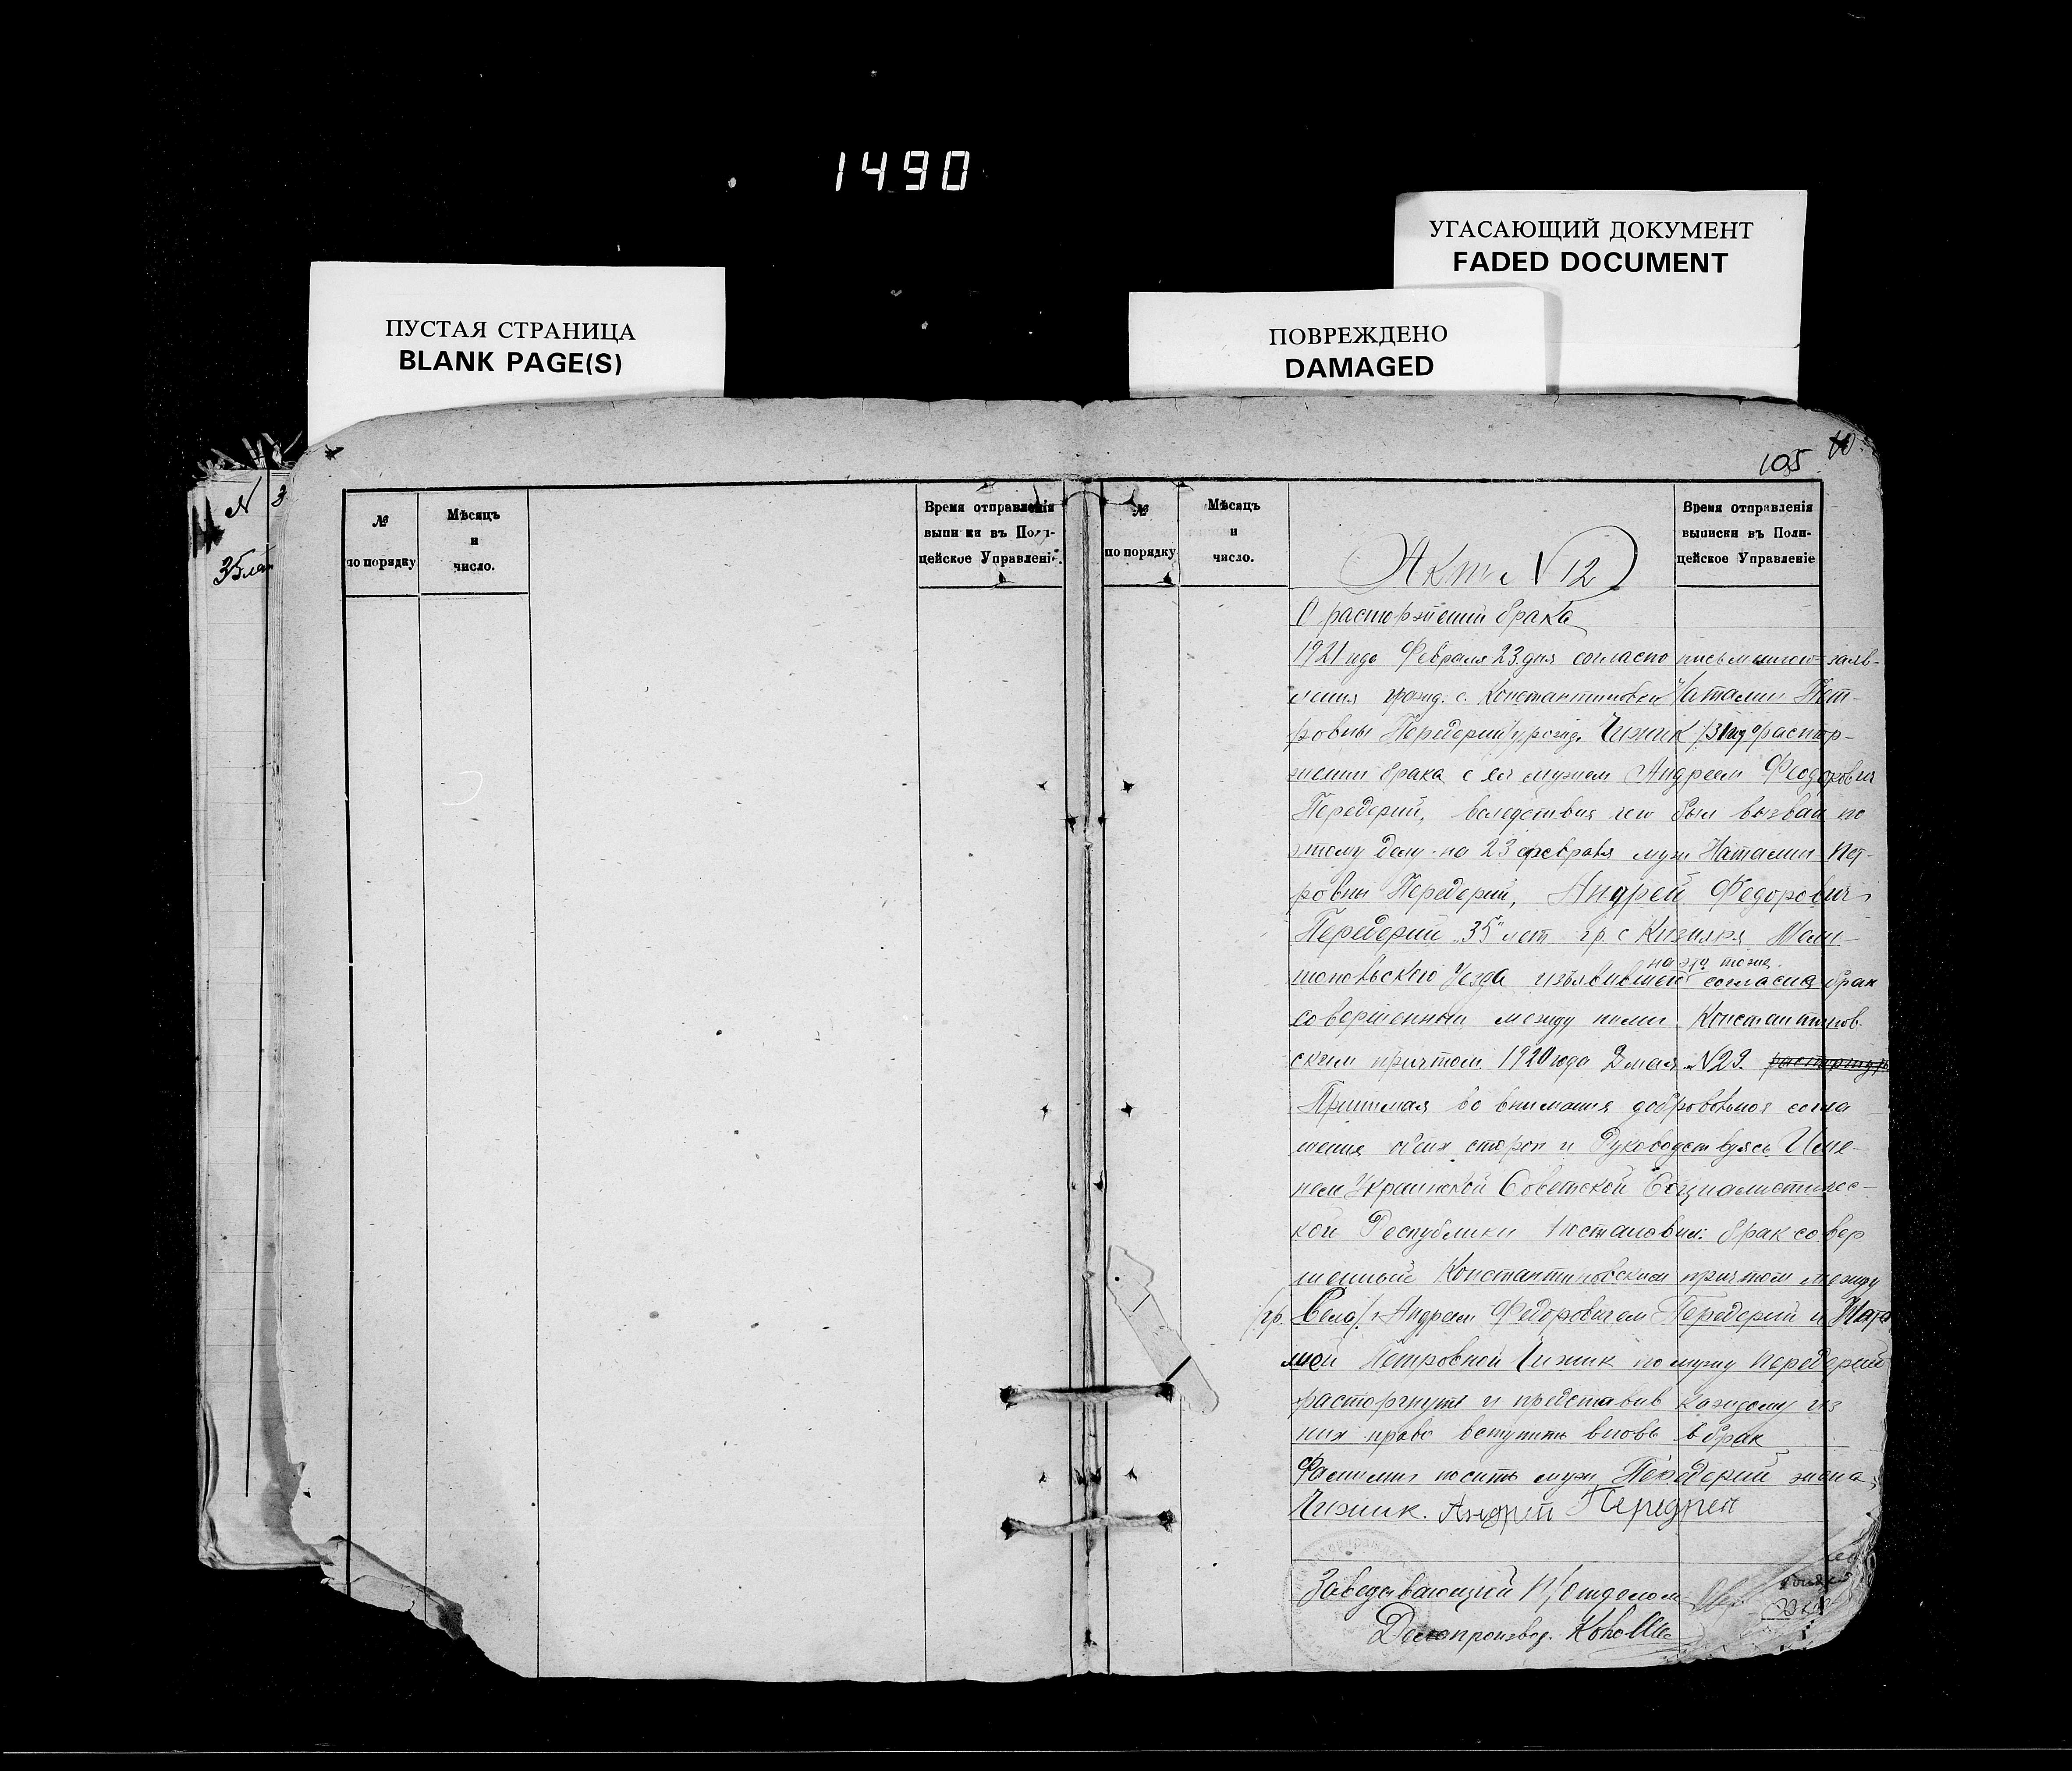 1490
УГАСАЮЩИЙ ДОКУМЕНТ
FADED DOCUMENT
ПУСТАЯ СТРАНИЦА
BLANK PAGE(S)
ПОВРЕЖДЕНО
DAMAGED
105
№
по порядку
Мѣсяцъ
и
число.
Время отправленія
выписки въ Поли-
цейское Управленіе.
№
по порядку
Мѣсяцъ
и
число.
Время отправленія
выписки въ Поли-
цейское Управленіе
Акт № 12
О расторжении брака
1921 года Февраля 23 дня согласно письменного заяв-
ления гражд. с. Константиновки Наталии Пет-
ровны Передерий урожд. Чижик /31 год о растор-
жении брака с ея мужем Андреем Феодорович
Передерий, вследствия чего был вызван по
этому делу на 23 февраля муж Наталии Пет-
ровны Передерий, Андрей Федорович
Передерий "35" лет гр. с Кизияра Мели-
топольского Уезда изъявивший на это тоже согласия брак
совершенный между ними Константинов-
ским причтом 1920 года 2 мая № 29. расторгнут
Принимая во внимания добровольноя согла
шения обеих сторон и Руководствуясь Име-
нем Украинской Советской Социалистичес-
кой Республики Постановил: брак совер
шенный Константиновским причтом между
/гр. Села/ Андреем Федоровичем Передерий и Ната
лией Петровной Чижик по мужу Передерий
расторгнуть и представив каждому из
них право вступить вновь в брак
Фамилии носить муж Передерий жена
Чижик. Андрей Передрей
Заведывающий П/Отделом
Делопроизвод.